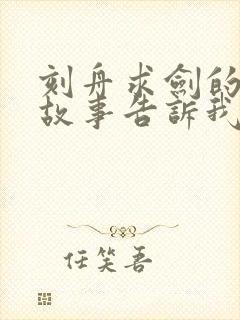 刻舟求劍的
故事告訴我
任笑吾